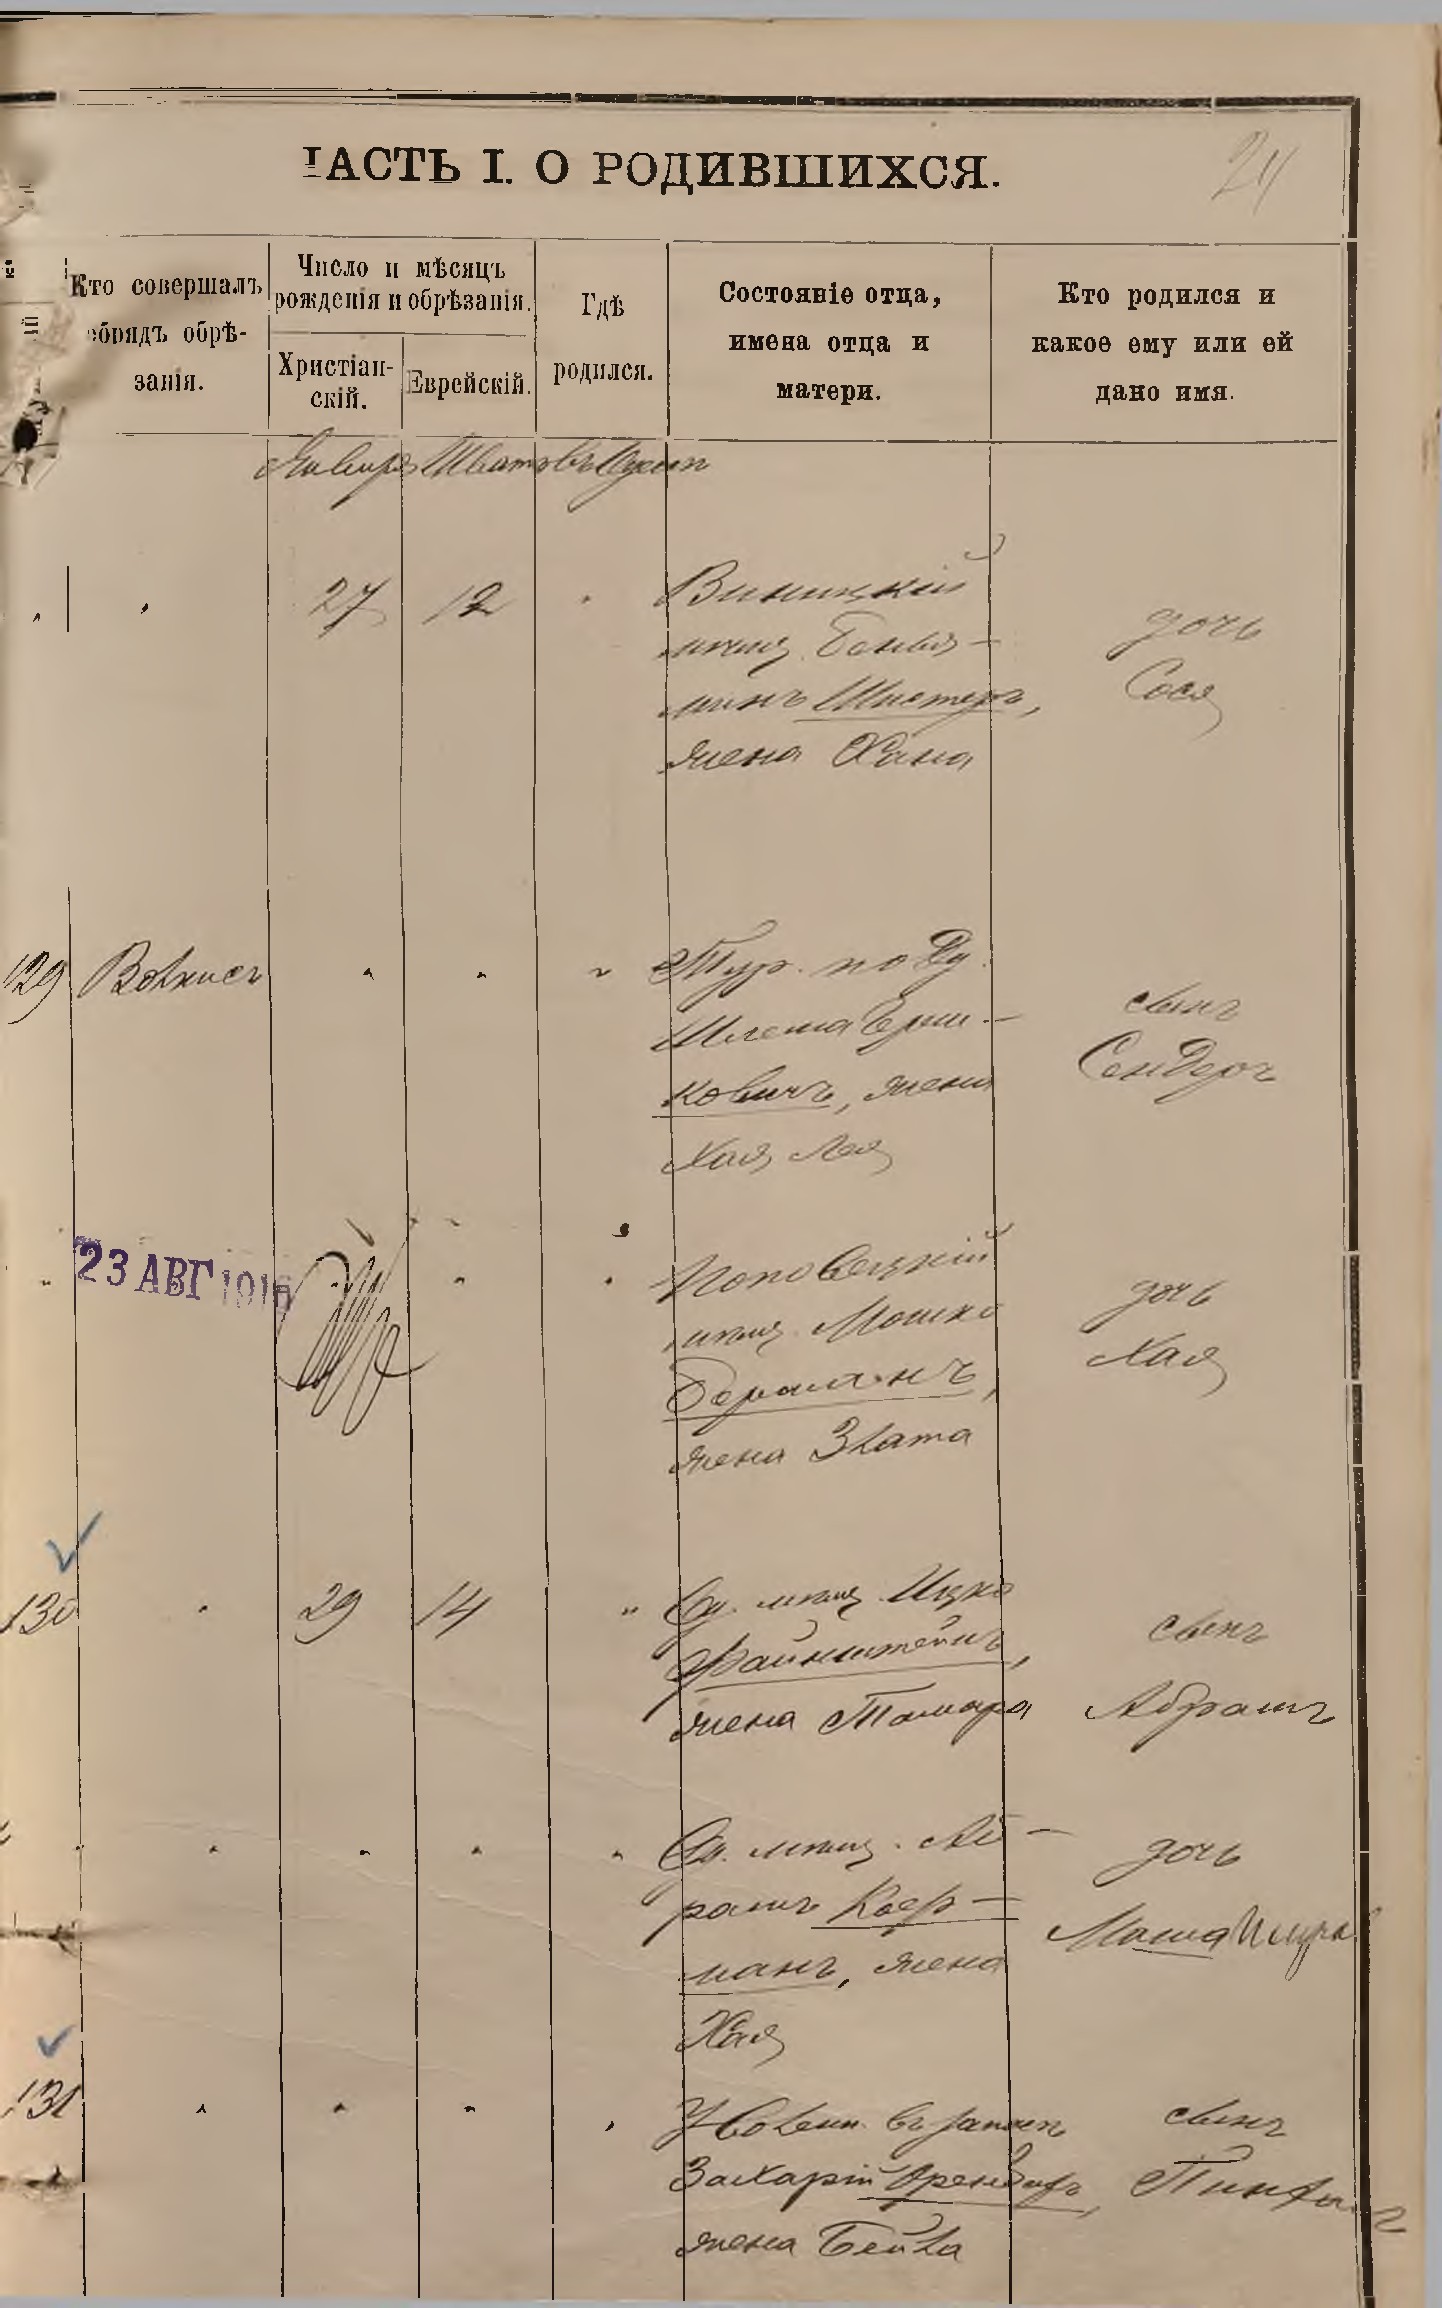 ЧАСТЬ I. О РОДИВШИХСЯ.
24
Кто совершалъ
обрядъ обрѣ-
занія.
Число и мѣсяцъ
рожденія и обрѣзанія.
Христіан-
скій.
Еврейскій.
Гдѣ
родился.
Состояніе отца,
имена отца и
матери.
Кто родился и
какое ему или ей
дано имя.
Января Шватъ въ Одессѣ
27 12
Виницкій
мѣщ. Беніа-
минъ Шистеръ,
жена Хана
дочь
Сося
129
Волкисъ
Шлема Ерш-
ковичъ, жена
Хая Лея
сынъ
Сендеръ
23 АВГ 1916
мѣщ. Мошко
Берманъ,
жена Злата
дочь
Хая
130
29 14
Од. мѣщ. Ицко
Файнштейнъ,
жена Тамара
сынъ
Абрамъ
Од. мѣщ. Аб-
рамъ Коер-
манъ, жена
Хая
дочь
Маша
131
Уволен. въ запасъ
Захарій Арендаръ,
жена Бейла
сынъ
Пинхасъ